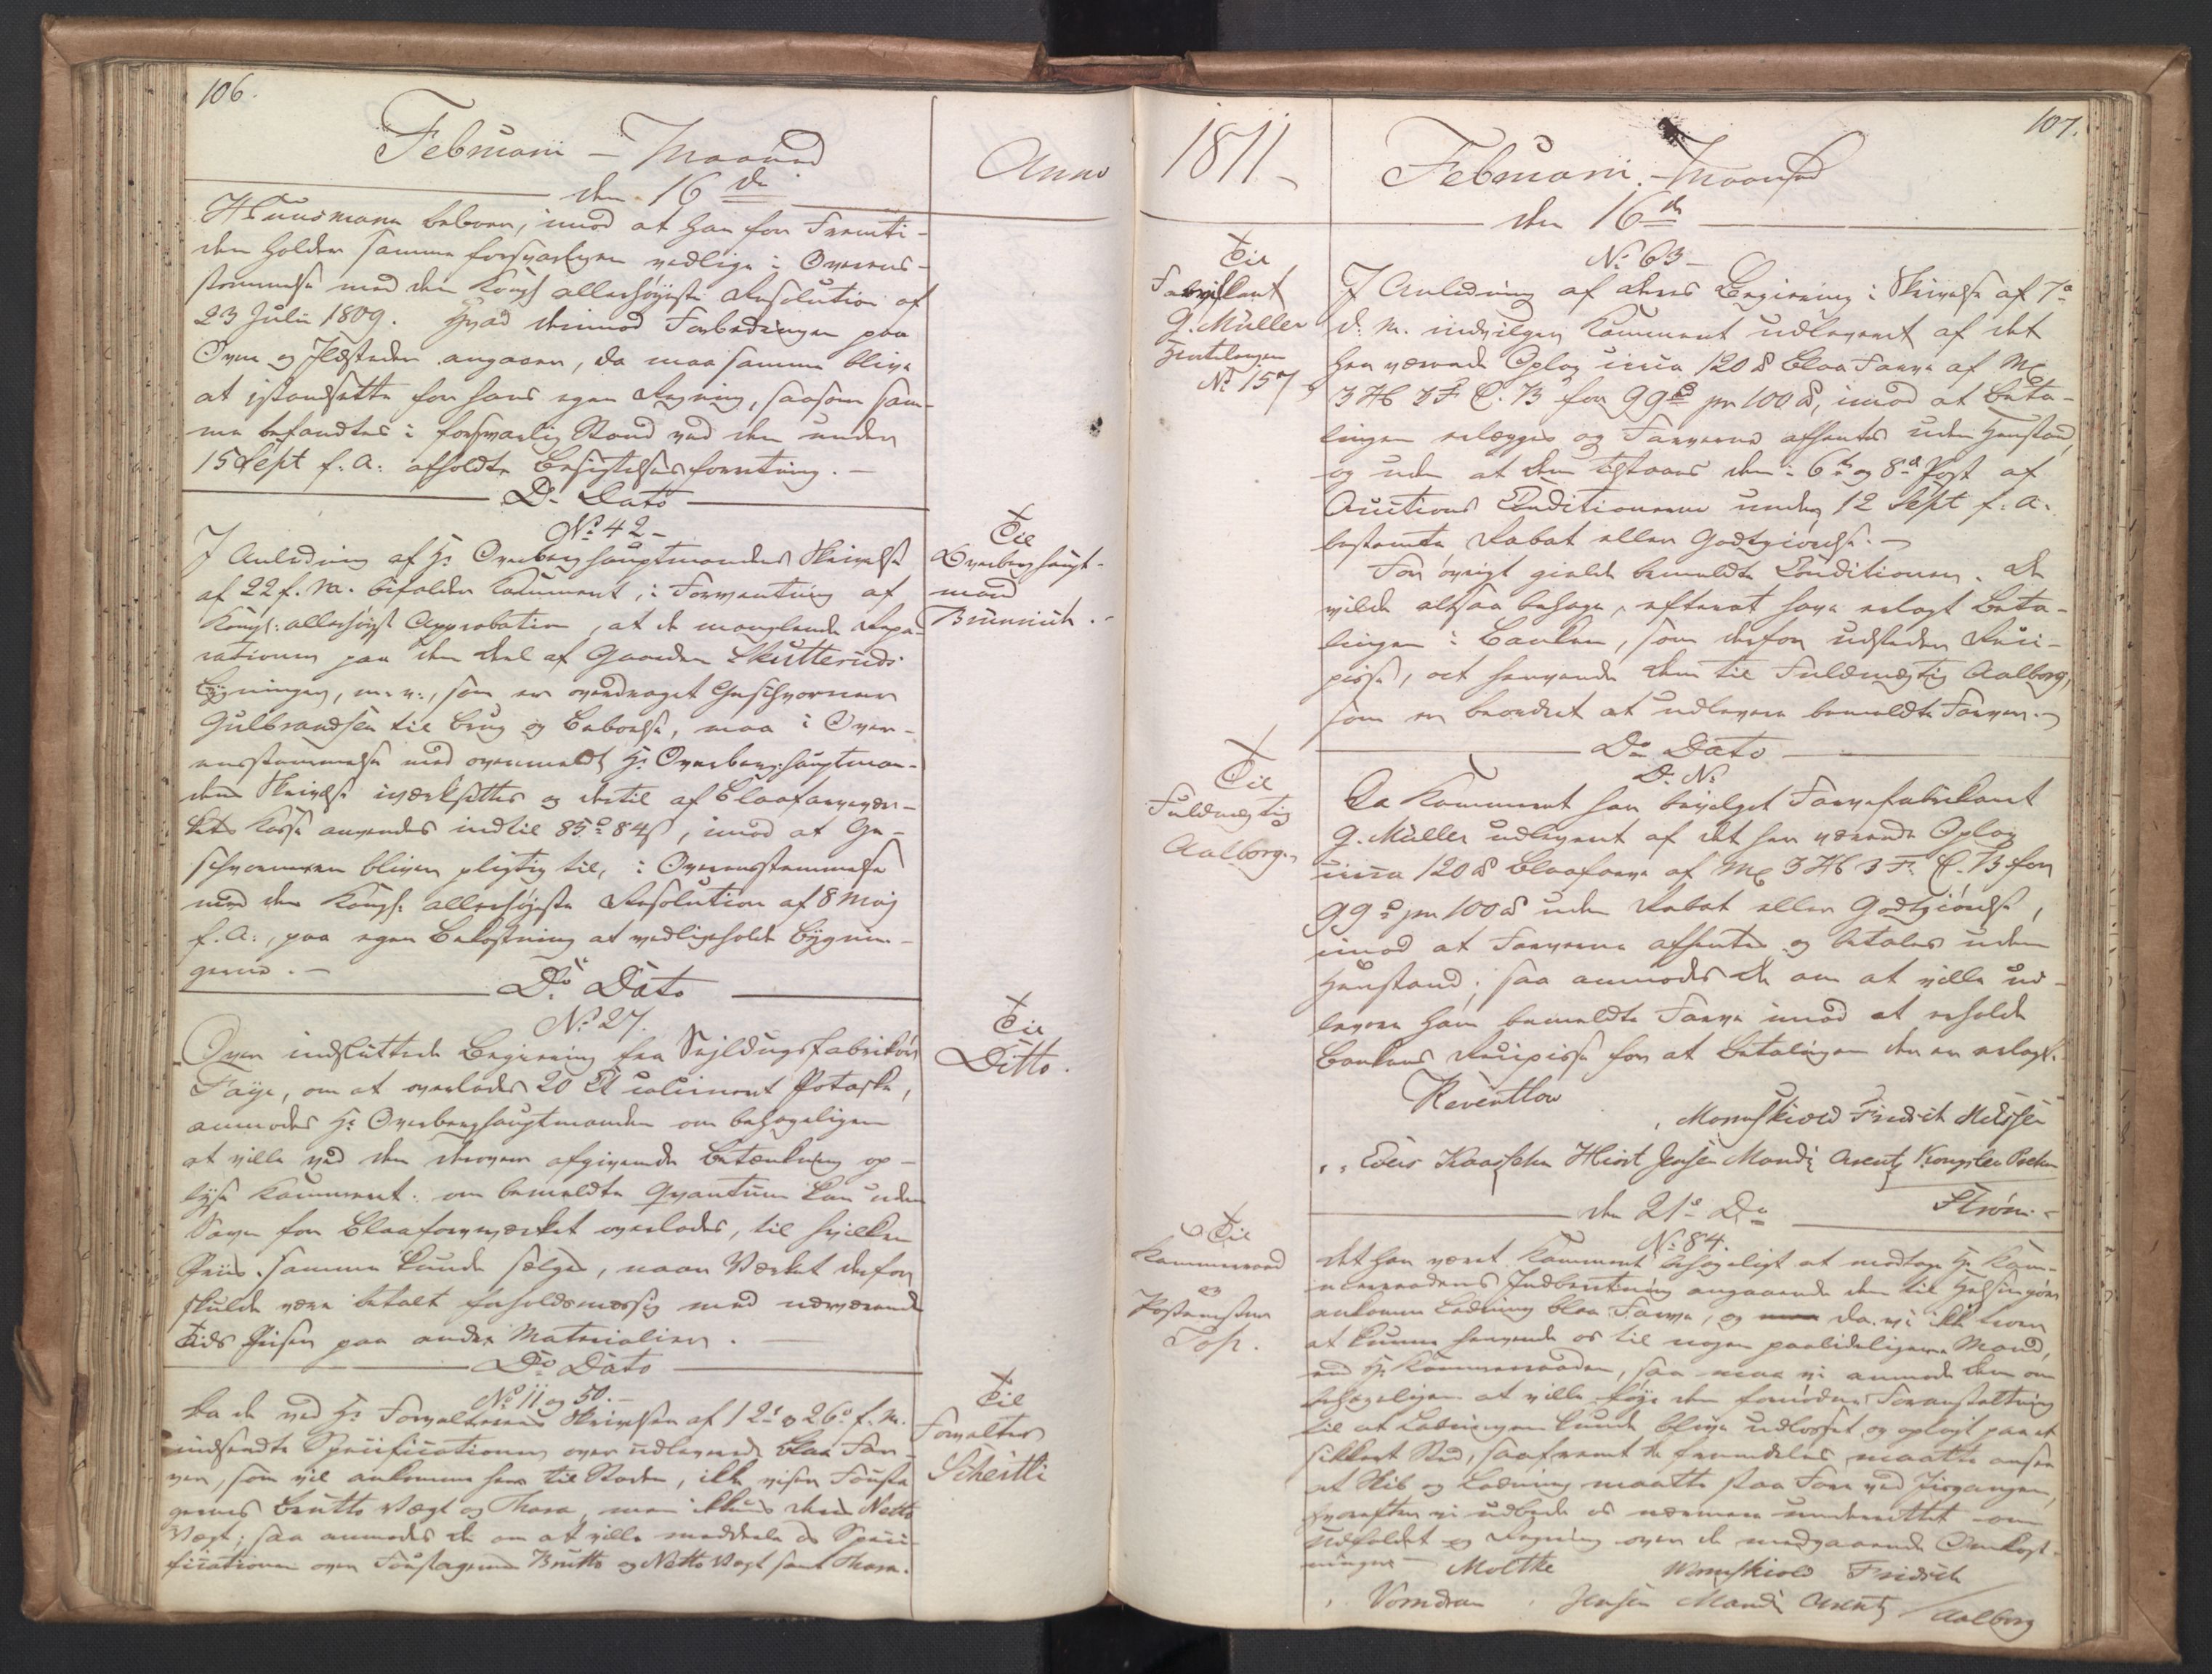 106.
Februarii – Maaned
den 16de
Anno
Huusmann beboer, imod at han for Fremti-
den holder samme forsvarligen vedlige i Overeens-
stemmelse med den Kongl allerhöyeste Resolution af
23 Julii 1809. Hvad derimod Forbedringer paa
Ovne og Ildsteder angaaer, da maa samme blive
at istandsætte for hans egen Regning, saasom sam-
me befandtes i forsvarlig Stand ved den under
15 Sept f: A: afholdte Besigtelsesforretning. –
Do Dato
No 42 –
Til
Overberghaupt-
mand
Brünnich.
I Anledning af Hr Overberghauptmandens Skrivelse
af 22 f. M. bifalder Kammeret, i Forventning af
Kongl: allerhöyst Approbation, at de manglende Repa-
rationer paa den Deel af Gaarden Skutteruds
Bygninger, m. v., som er overdraget Geschworner
Gulbrandsen til Brug og Beboelse, maa i Over-
eensstemmelse med ovenmeldt Hr Overberghauptman-
dens Skrivelse iværksættes og dertil af Blaafarvevær-
kets Kasse anvendes indtil 85 rd 84 s, imod at Ge-
schworneren bliver pligtig til, i Overensstemmelse
med den Kongl. allerhöyeste Resolution af 8 Maj
f. A:, paa egen Bekostning at vedligeholde Bygnin-
gerne. –
Do Dato
No 27.
Til
Ditto.
Over indsluttede Begiering fra Sejldugsfabrikör
Faye, om at overlades 20 calcineret Potaske,
anmodes Hr Overberghauptmanden om behageligen
at ville ved den derover afgivende Betænkning op-
lyse Kammeret: om bemeldte Qvantum kan uden
Savn for Blaafarveværket overlades, til hvilken
Priis samme kunde sælges, naar Værket derfor
skulde være betalt forholdsmæssig med nærværende
Tids Prisen paa andre Materialier. –
Do Dato
No 11 og 50. –
Til
Forvalter
Scheitli
Da de ved Hr Forvalterens Skrivelser af 12 og 26 f. M.
indsendte Specificationer over udleverede blaa Far-
ver, som vil ankomme her til Staden, ikke viser Fousta-
gernes Brutto Vægt og Thara, men ikkuns dens Netto
Vægt; saa anmodes De om at ville meddele os Speci-
ficationer over Foustagernes Brutto og Netto Vægt samt Thara.
107.
1811 –
Februarii – Maaned
den 16de
No 63 –
Til
Fabrikant
G. Müller
No 157
I Anledning af Deres Begiering i Skrivelse af 7de
d. M. indvilges Kammeret udleveret af det
her værende Oplag circa 120 ℔ blaa Farve af Mk
3 H 3 F C. B for 99 rd pr 100 ℔, imod at Beta-
lingen erlægges og Farverne afhentes uden Henstand,
og uden at dem tilstaaes den i 6te og 8de Post af
Auctions Conditionerne under 12 Sept f: A:
bestemte Rabat eller Godtgiörelse. –
For övrigt gielde bemeldte Conditioner. De
vilde altsaa behage, efterat have erlagt Beta-
lingen i Banken, som derfor udsteder Reci-
pisse, at henvende dem til Fuldmægtig Aalborg,
som er beordret at udlevere bemeldte Farver. –
Do Dato
Do No
Til
Fuldmægtig
Aalborg.
Da Kammeret har bevilget Farvefabrikant
G. Müller udleveret af det her værende Oplag
circa 120 ℔ Blaafarve af Mk 3 H 3 F. C. B for
99 rd pr 100 ℔ uden Rabat eller Godtgiörelse,
imod at Farverne afhentes og betales uden
Henstand; saa anmodes De om at ville ud-
levere ham bemeldte Farve imod at erholde
Bankens Recipisse for at Betalingen der er erlagt.
Reventlow
Monskiold Fridrich
Hiort Jensen Mandix Arentz
Ström
den 21de Do
No 84.
Til
Kammerraad
og
Postmester
Det har været Kammeret behageligt at modtage Hr Kam-
merraadens Indberetning angaaende den til Helsingöer
ankomne Ladning blaa Farve, og da vi ikke troer
at kunne henvende os til nogen paalideligere Mand,
end Hr Kammerraaden, saa maa vi anmode Dem om
behageligen at ville föye den fornödne Foranstaltning
til at Ladningen kunde blive udlosset og oplagt paa et
sikkert Sted, saafremt De fremdeles maatte ansee
at Skib og Ladning maatte staa Fare ved Iisgangen,
hvorefter vi udbede os nærmere underrettet om
Udfaldet og Regning over de medgaaende Omkost-
ninger –
Moltke
Wormskiold Fridrich
Vorndran Jensen Mandix Arentz
/Aalborg